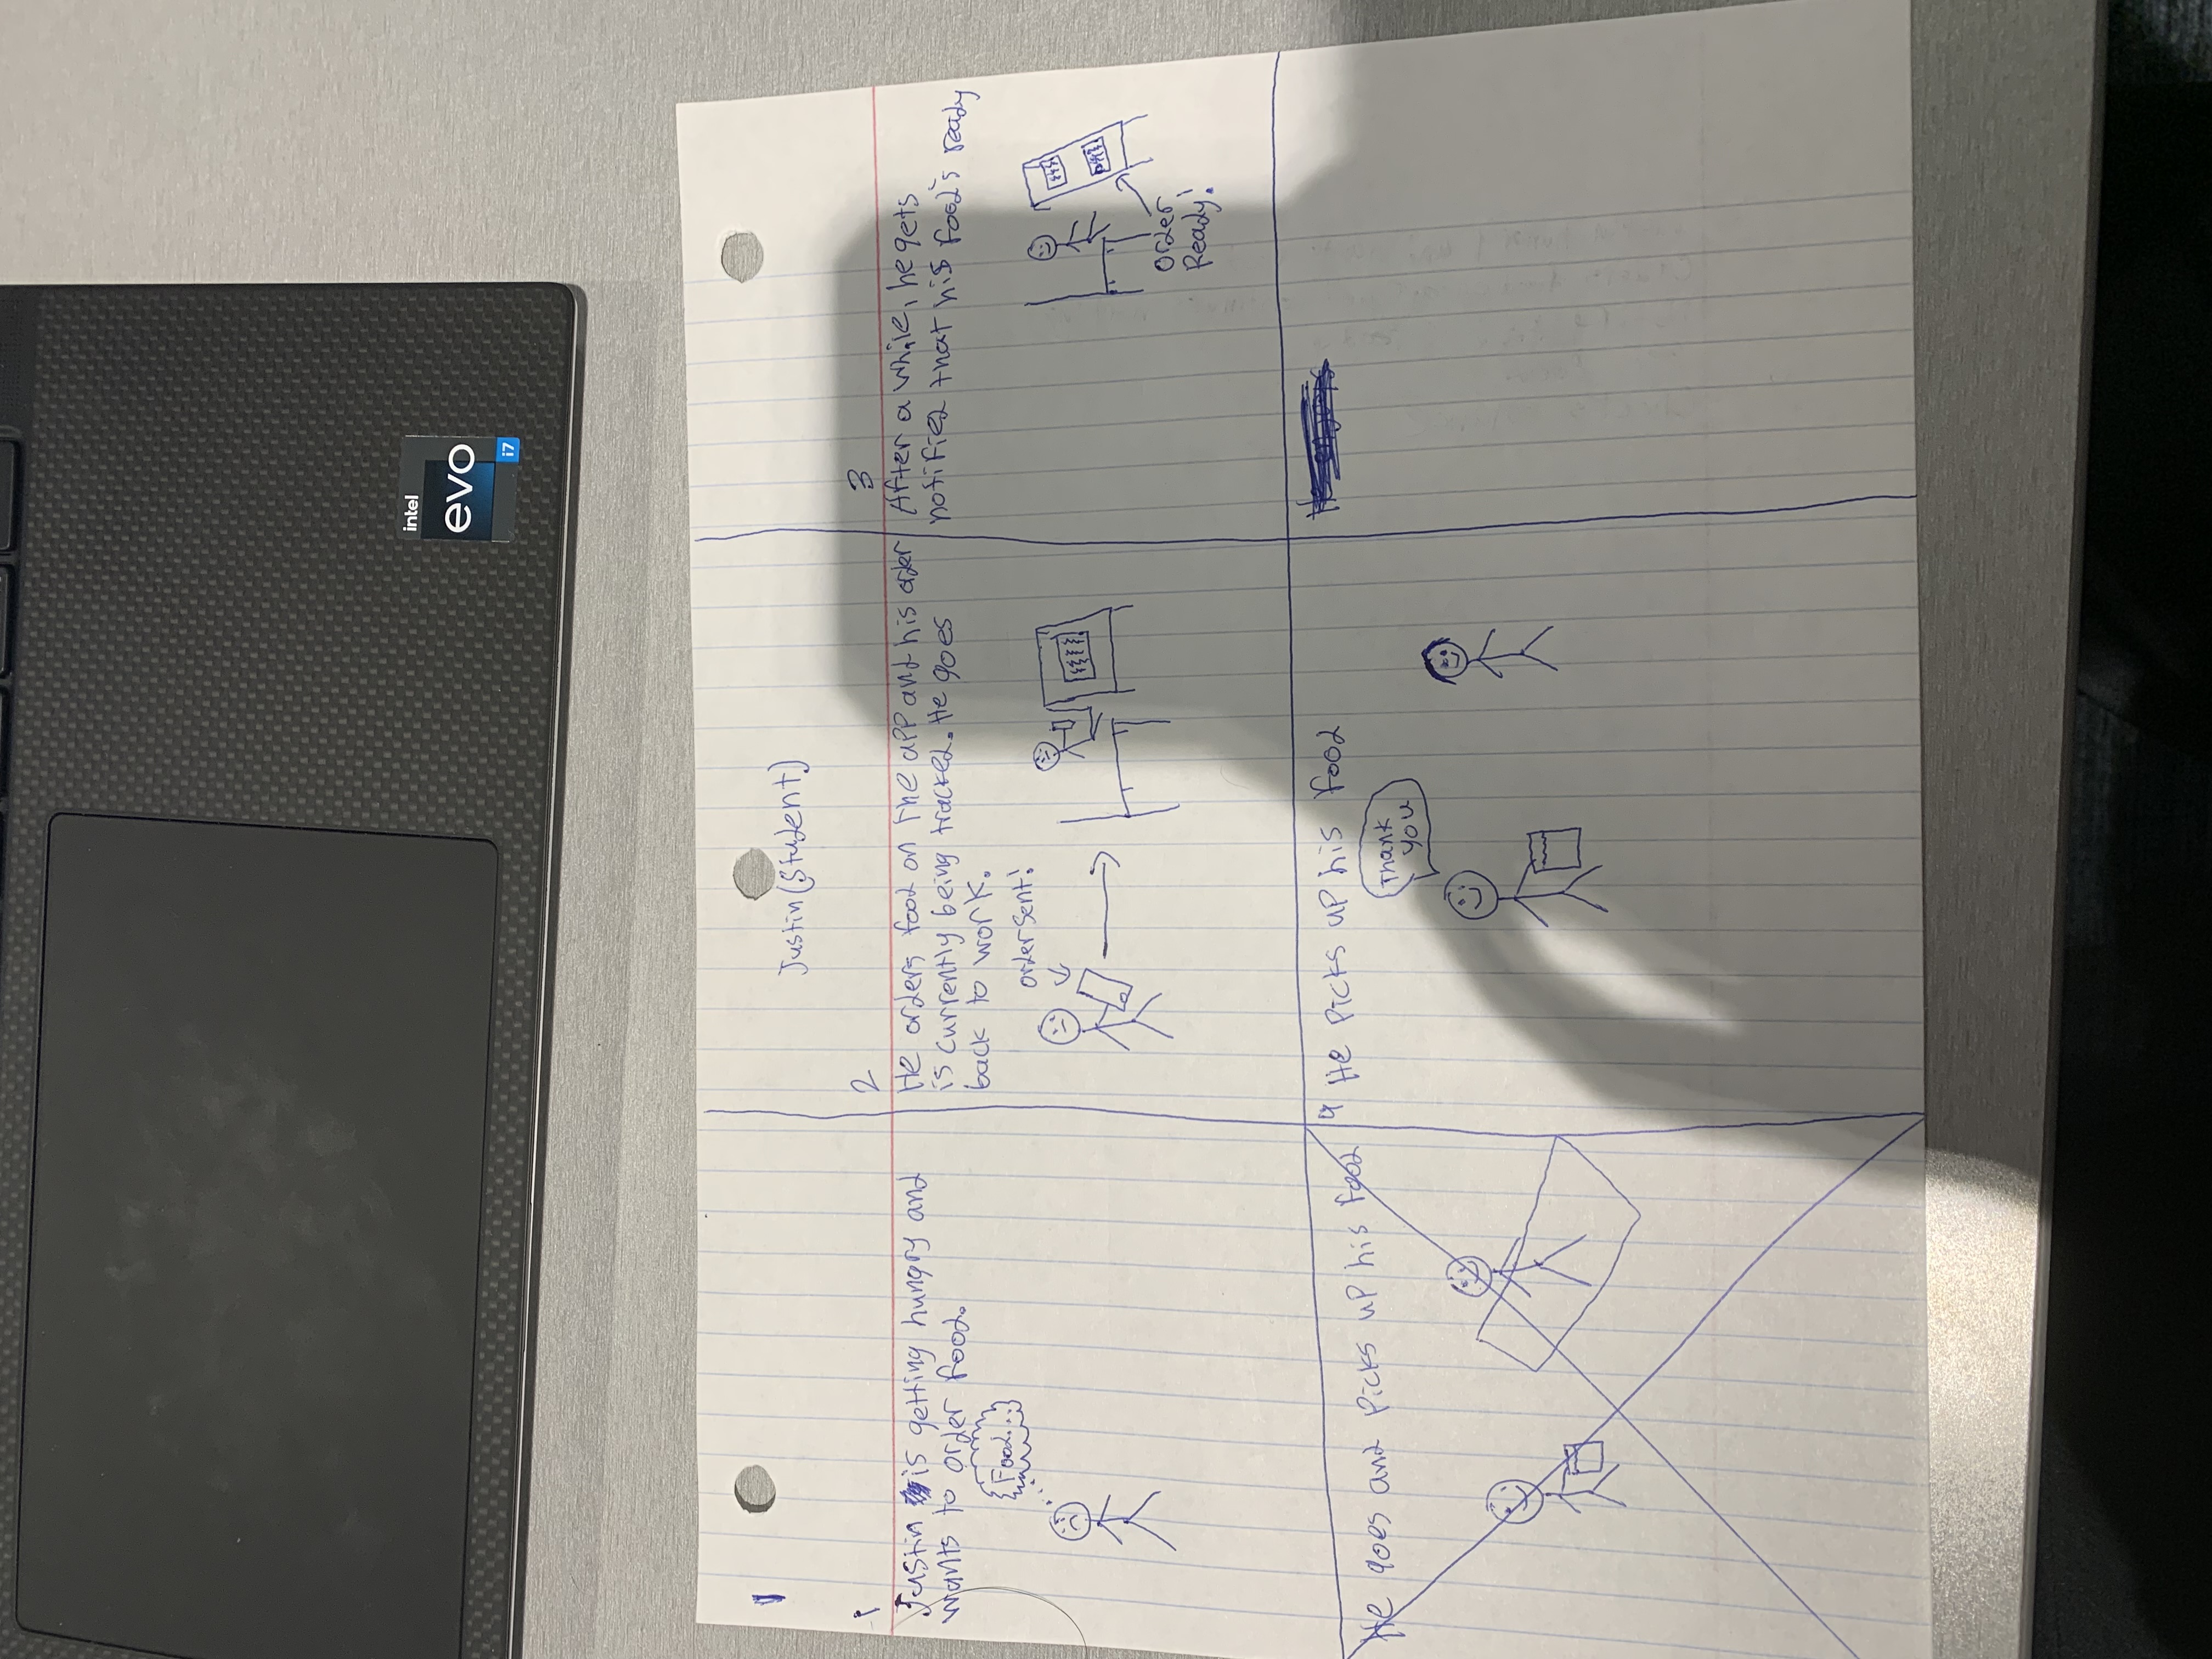 intel
evo
i7
Justin (Student)
1
Justin is getting hungry and
wants to order food.
Food...
2
He orders food on the app and his order
is currently being tracked. He goes
back to work.
order sent!
3
After a while, he gets
notified that his food's ready
Order
Ready!
He goes and picks up his food
4 He picks up his food
Thank
you